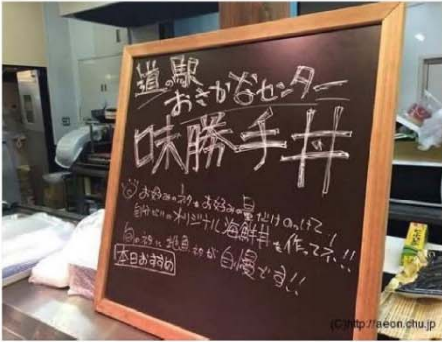 道の駅
おさかなセンター
味勝手丼
お好みのネタをお好みの量だけのっけて
自分だけのオリジナル海鮮丼を作ってネ!!
旬のネタに地魚 が自慢です!!
本日おすすめ
(C)http://aeon.chu.jp